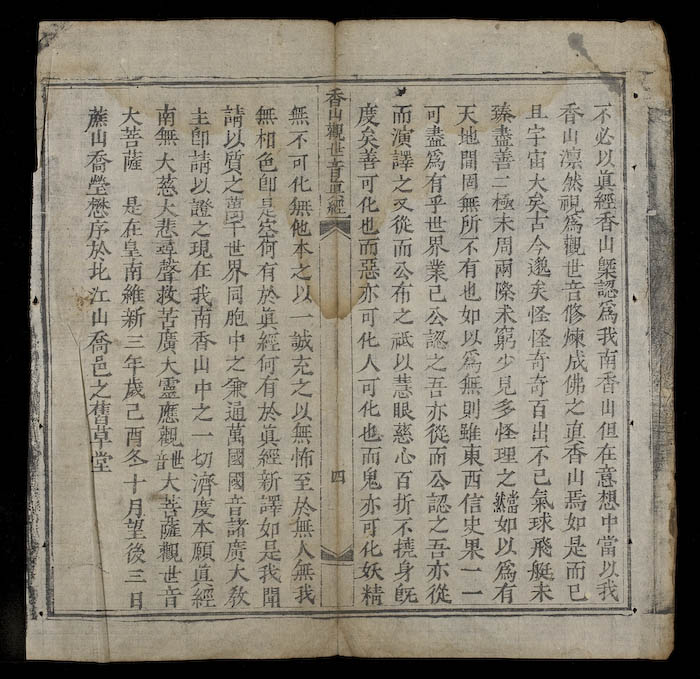 不必以眞經香山槩認爲我南香山但在意想中當以我
香山凛然視爲觀世音修煉成佛之眞香山焉如是而已
且宇宙大矣古今邈矣怪怪奇奇百出不已氣球飛艇未
臻盡善二極未周兩隙未窮少見多怪理之當然如以爲有
天地間固無所不有也如以爲無則雖東西信史果一一
可盡爲有乎世界業已公認之吾亦從而公認之吾亦從
而演譯之又從而公布之祗以慧眼慈心百折不撓身旣
度矣善可化也而惡亦可化人可化也而鬼亦可化妖精
香山觀世音眞經
四
無不可化無他本之以一誠充之以無怖至於無人無我
無相色卽是空何有於眞經何有於眞經新譯如是我聞
請以質之萬千世界同胞中之兼通萬國國音諸廣大敎
主卽請以證之現在我南香山中之一切濟度本願眞經
南無大慈大悲尋聲救苦廣大靈應觀世音大菩薩觀世音
大菩薩　是在皇南維新三年歲己酉冬十月望後三日
蔗山喬瑩懋序於北江山喬邑之舊草堂